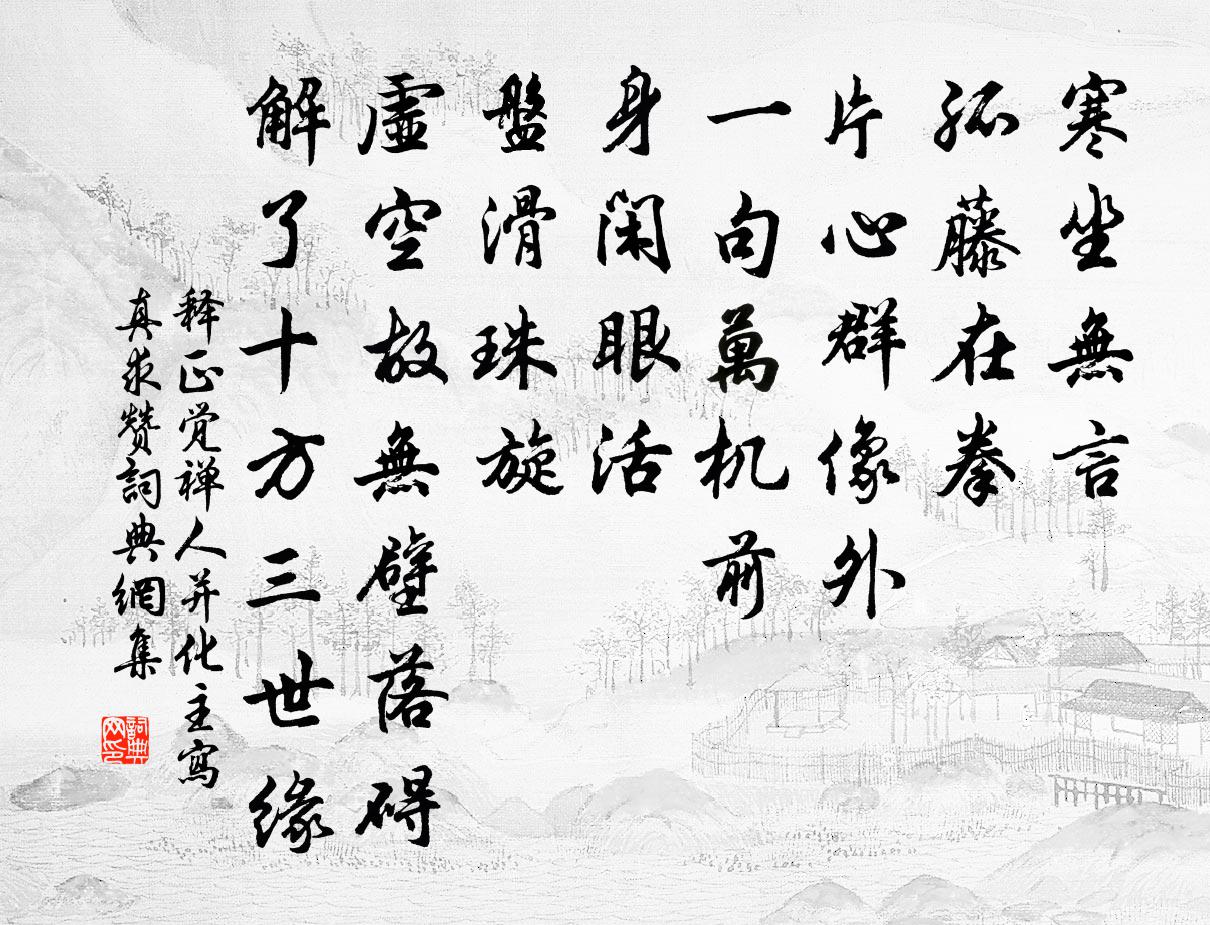 寒坐無言
孤藤在拳
片心群像外
一句萬机前
身闲眼活
盤滑珠旋
虛空故無壁落碍
解了十方三世缘
释正觉禅人并化主寫
真求赞詞典網集
詞典
网印